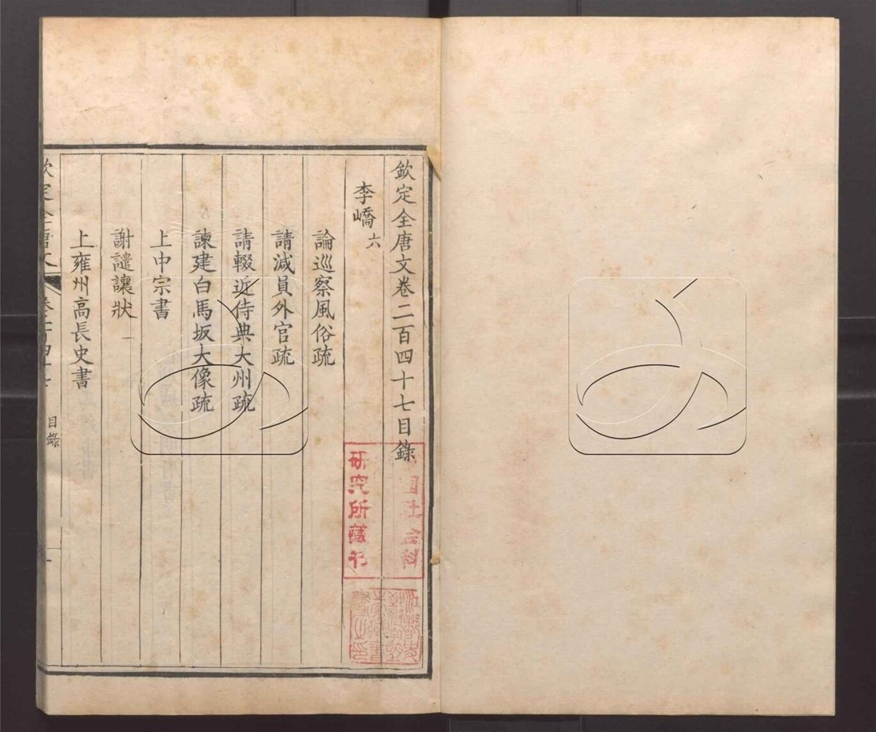 欽定全唐文卷二百四十七目錄
李嶠六
論巡察風俗疏
請減員外官疏
請輟近侍典大州疏
諫建白馬坂大像疏
上中宗書
謝譴讓狀
上雍州高長史書
欽定全唐文
目錄
一
研究所藏